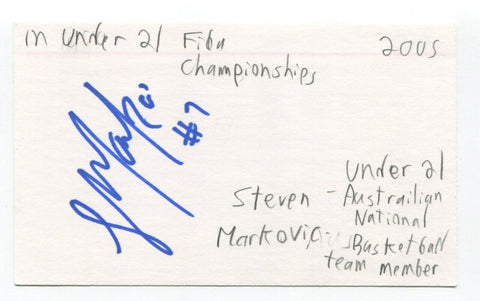 in under 21 Fiba 2005
Championships
S Markovic #7
under 21
Steven - Austrailian
National
Markovic Basketball
team member